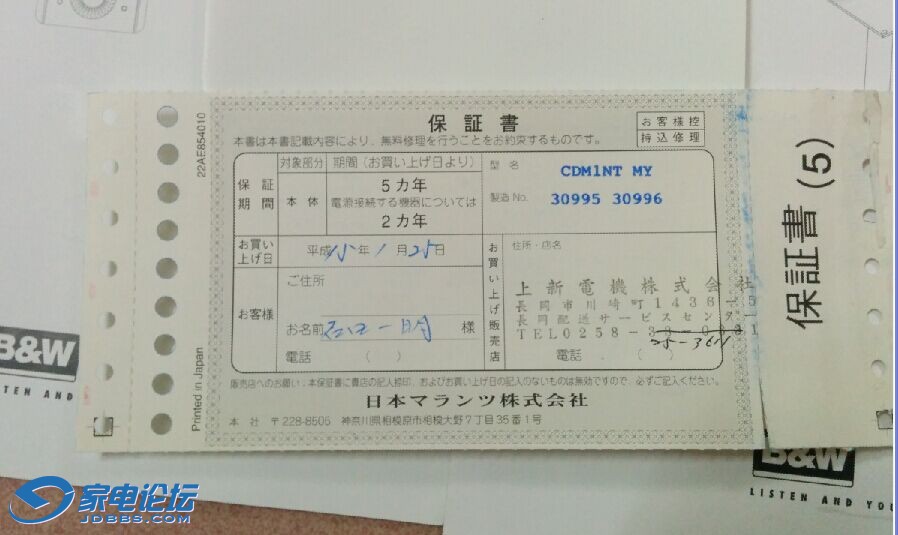 22AE854010
Printed in Japan
保証書
お客様控
持込修理
本書は本書記載内容により、無料修理を行うことをお約束するものです。
保証期間
対象部分 期間(お買い上げ日より)
本体
5カ年
電源接続する機器については
2カ年
型名 CDM1NT MY
製造No. 30995 30996
お買い上げ日
平成15年1月25日
お客様
ご住所
お名前 様
電話 ( )
お買い上げ販売店
住所・店名
上新電機株式会社
長岡市川崎町1438-5
長岡配送サービスセンター
TEL0258-
25-3611
電話 ( )
販売店へのお願い、本保証書に貴店の記入捺印、およびお買い上げ日の記入のないものは無効ですので、必ずご記入ください。
日本マランツ株式会社
本社 〒228-8505 神奈川県相模原市相模大野7丁目35番1号
保証書(5)
B&W
LISTEN AND
B&W
LISTEN AND YOU
家电论坛
JDBBS.COM